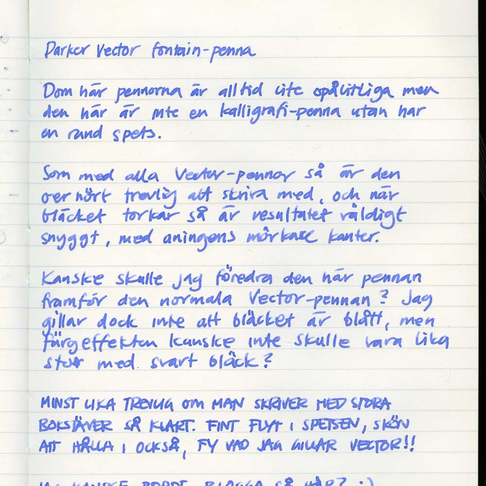 Parker Vector fontain-penna
Dom här pennorna är alltid lite opålitliga men
den här är inte en kalligrafi-penna utan har
en rund spets.
Som med alla Vector-pennor så är den
oerhört trevlig att skriva med, och när
bläcket torkar så är resultatet väldigt
snyggt, med aningens mörkare kanter.
Kanske skulle jag föredra den här pennan
framför den normala Vector-pennan? Jag
gillar dock inte att bläcket är blått, men
färgeffekten kanske inte skulle vara lika
stor med svart bläck?
MINST LIKA TREVLIG OM MAN SKRIVER MED STORA
BOKSTÄVER SÅ KLART. FINT FLYT I SPETSEN, SKÖN
ATT HÅLLA I OCKSÅ, FY VAD JAG GILLAR VECTOR!!
JAG KANSKE BORDE BLOGGA SÅ HÄR? :)